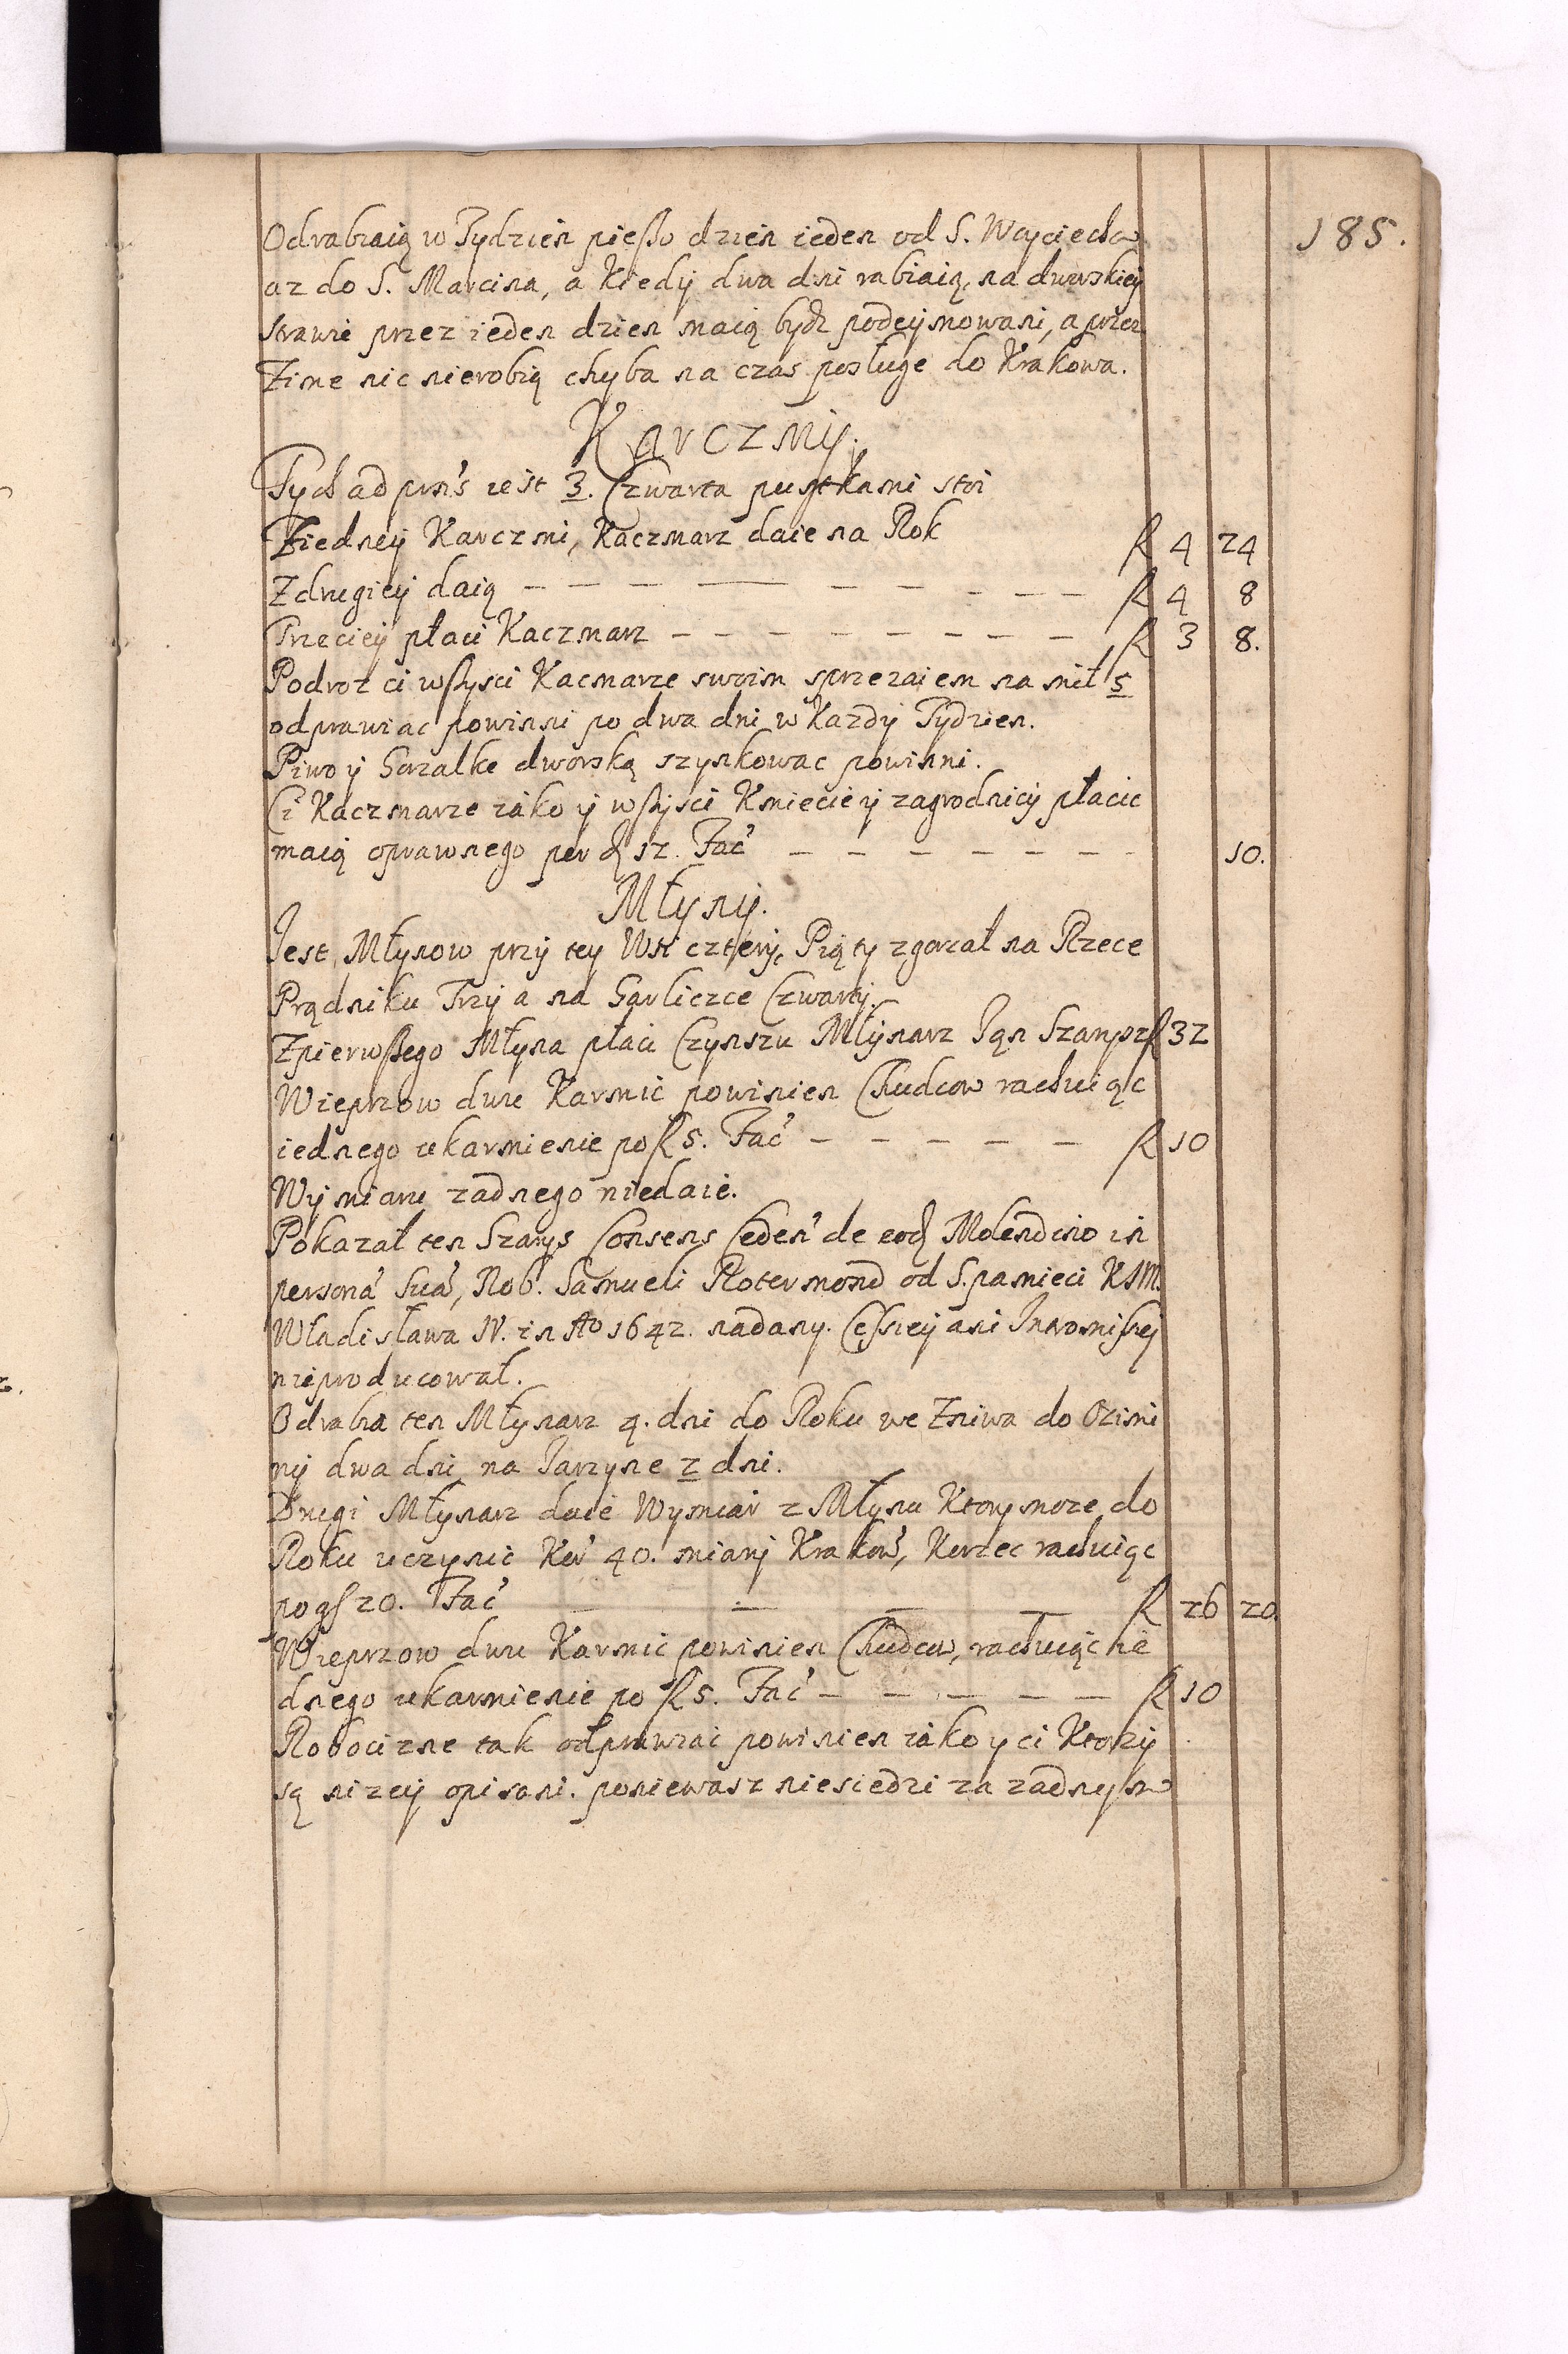 185.
Odrabiaią w Tydzień pießo dzień ieden od S. Woyciecha
az do S. Marcina, a Kiedÿ dwa dni rabiaią, na dworskieÿ
strawie przez ieden dzien maią bydz podeÿmowani, a przez
Zime nic nierobią chyba na czas posługe do Krakowa.
Karczmÿ.
Tych ad prns iest 3. Czwarta pustkami stoi
Ziedneÿ Karczmi, Kaczmarz daie na Rok f 4 24
Zdrugieÿ daią — — — — — — — — — f 4 8
Trzecieÿ płaci Kaczmarz — — — — — — — — — f 3 8.
Podroz ci wßysci Kacmarze swoim sprzezaiem na mil 5
odprawiac powinni po dwa dni w Kazdÿ Tydzien.
Piwo ÿ Gorzalke dworską szynkowac powinni.
Ci Kaczmarze iáko ÿ wßÿsci Kmiecie ÿ zagrodnicÿ płacic
maią oprawnego per d 12. Fać — — — — — — — — 10.
Młynÿ.
Jest Młynow przÿ teÿ Wsi czterÿ, Piąty zgorzał na Rzece
Prądniku Trzÿ a na Garliczce Czwartÿ.
Zpierwßego Młyna płaci Czynszu Młÿnarz Jąn Szarÿsz f 32
Wieprzow dwu Karmić powinien Chudcow rachuiąc
iednego ukarmienie po f 5. Fać — — — — — f 10
Wÿmiaru zadnego niedaie.
Pokazał ten Szarys Consens Ceden de eod Molendino in
persona Sua, Nob. Samueli Rotermond od S. pamieci KJM
Władisława IV. in Ao 1642. nadany. Cessieÿ ani Intromissieÿ
nieproducował.
Odrabia ten Młynarz 4. dni do Roku we Zniwa do Ozimi
nÿ dwa dni na Jarzyne 2 dni.
Drugi Młynarz daie Wymiar z Młynu Ktory moze do
Roku uczynic Kor 40. miarÿ Krakow, Korzec rachuiąc
po gß 20. Fać — — — — f 26 20
Wieprzow dwu Karmic powinien Chudcow, rachuiąc ie
dnego ukarmienie po f 5. Fać — — — — — f 10
Robocizne tak odprawiać powinien iáko y ci Ktorzÿ
są nizeÿ opisani. poniewasz niesiedzi za zadnym